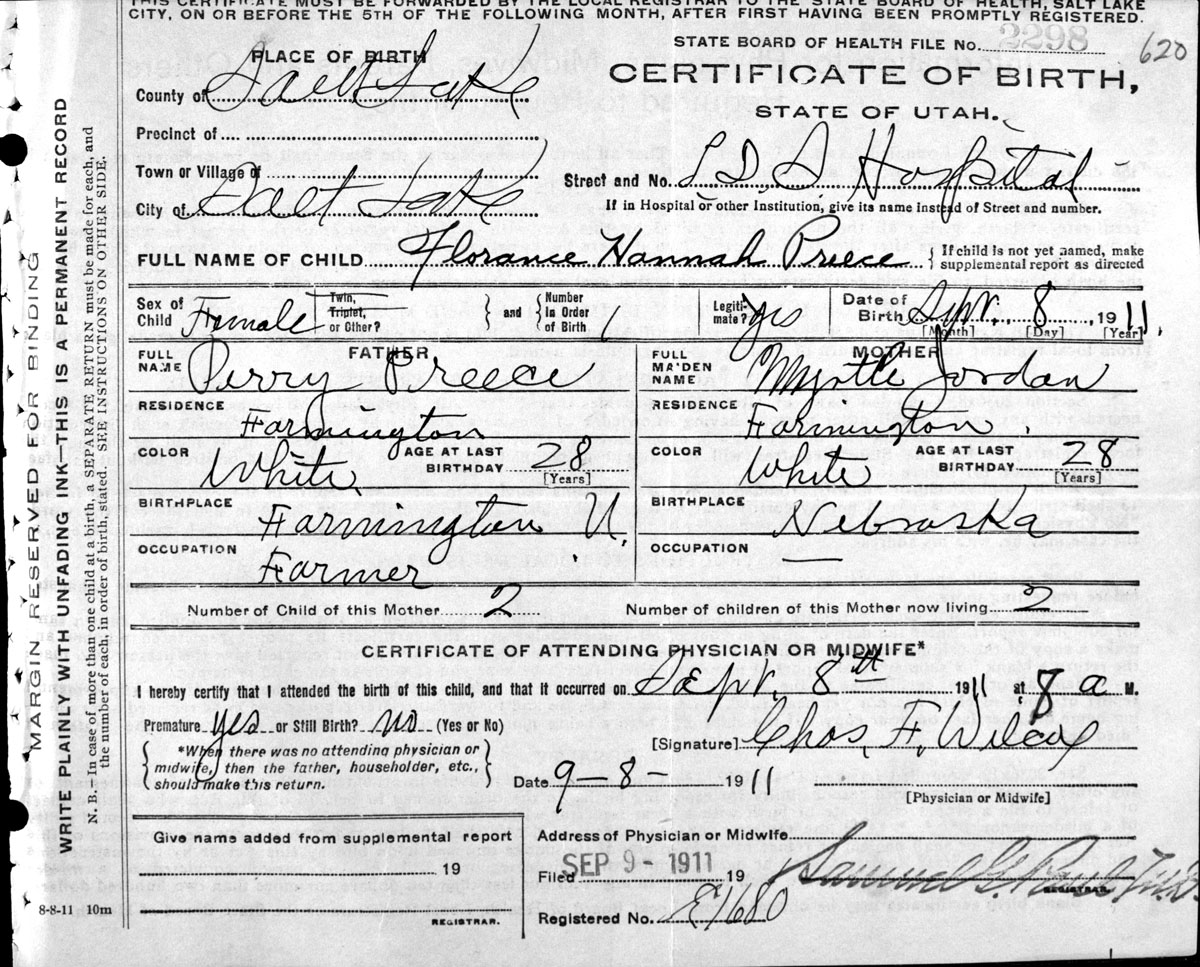 THIS CERTIFICATE MUST BE FORWARDED BY THE LOCAL REGISTRAR TO THE STATE BOARD OF HEALTH, SALT LAKE
CITY, ON OR BEFORE THE 5TH OF THE FOLLOWING MONTH, AFTER FIRST HAVING BEEN PROMPTLY REGISTERED.
STATE BOARD OF HEALTH FILE No. 2298
620
PLACE OF BIRTH
CERTIFICATE OF BIRTH,
STATE OF UTAH.
County of Salt Lake
Precinct of
Town or Village of
City of Salt Lake
Street and No. L.D.S. Hospital
If in Hospital or other Institution, give its name instead of Street and number.
FULL NAME OF CHILD Florance Hannah Preece { If child is not yet named, make supplemental report as directed
Sex of Child Female
Twin, Triplet, or Other?
} and {
Number in Order of Birth
Legiti- mate? yes
Date of Birth Sept. 8, 1911,
[Month] [Day] [Year]
FATHER,
FULL NAME Perry Preece
MOTHER
FULL MAIDEN NAME Myrtle Jordan
RESIDENCE Farmington
RESIDENCE Farmington.
COLOR White
AGE AT LAST BIRTHDAY 28
[Years]
COLOR White
AGE AT LAST BIRTHDAY 28
[Years]
BIRTHPLACE Farmington U.
BIRTHPLACE Nebraska
OCCUPATION Farmer
OCCUPATION —
Number of Child of this Mother 2
Number of children of this Mother now living 2
CERTIFICATE OF ATTENDING PHYSICIAN OR MIDWIFE*
I hereby certify that I attended the birth of this child, and that it occurred on Sept. 8th 1911 at 8 a M.
Premature yes or Still Birth? no (Yes or No)
{ *When there was no attending physician or midwife, then the father, householder, etc., should make this return. }
[Signature] Chas. F. Wilcox
Date 9-8- 1911
[Physician or Midwife]
Give name added from supplemental report
19
REGISTRAR.
Address of Physician or Midwife
Filed SEP 9 - 1911 19
REGISTRAR.
Registered No. E1680
8-8-11 10m
MARGIN RESERVED FOR BINDING
WRITE PLAINLY WITH UNFADING INK-THIS IS A PERMANENT RECORD
N. B.—In case of more than one child at a birth, a SEPARATE RETURN must be made for each, and
the number of each, in order of birth, stated. SEE INSTRUCTIONS ON OTHER SIDE.